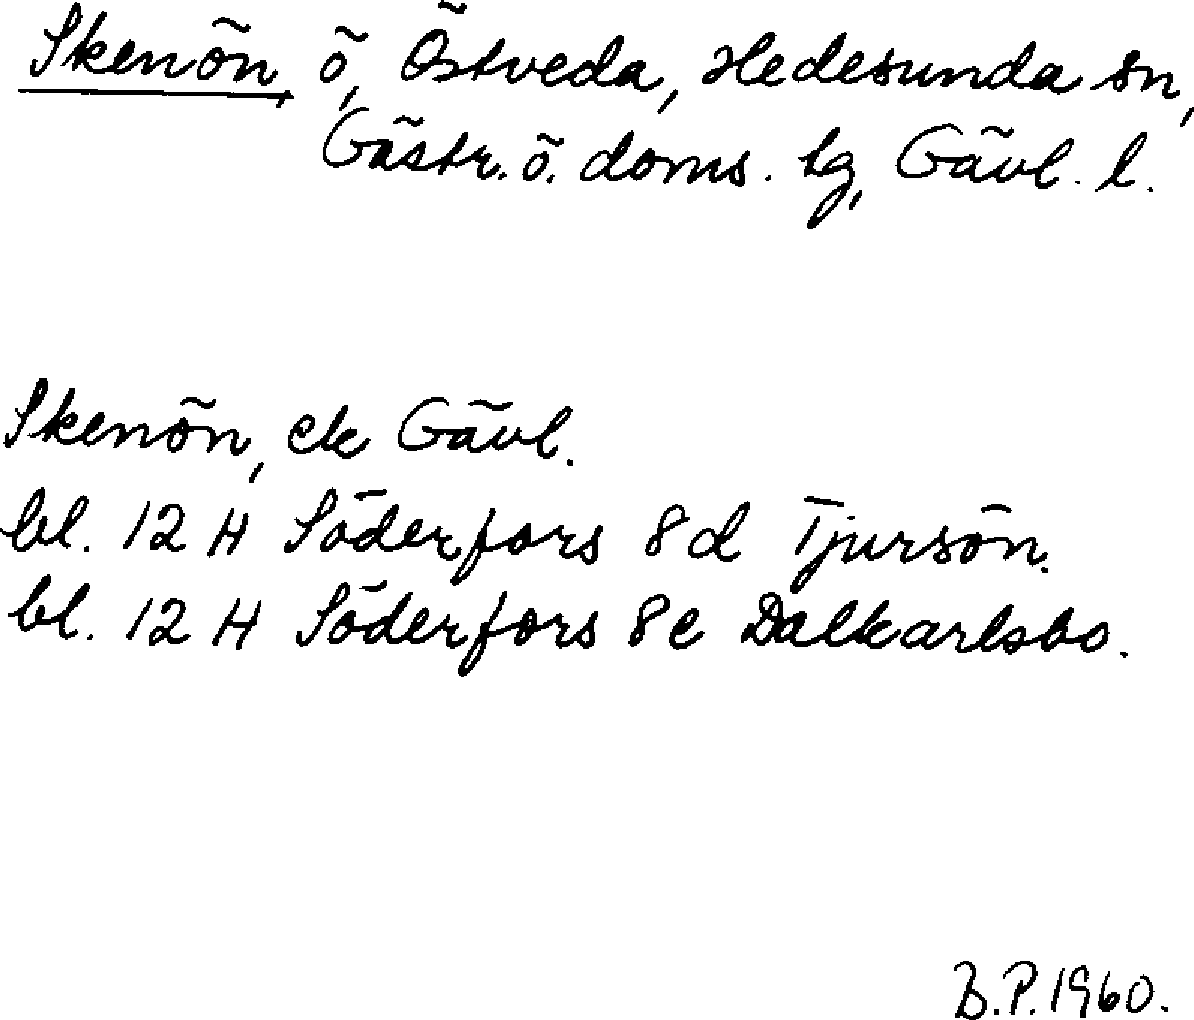 Skenön, ö, Östveda, Hedesunda sn,
Gästr. ö. doms. tg, Gävl. l.
Skenön, ek Gävl.
bl. 12 H Söderfors 8d Tjursön.
bl. 12 H Söderfors 8e Dalkarlsbo.
B.P. 1960.